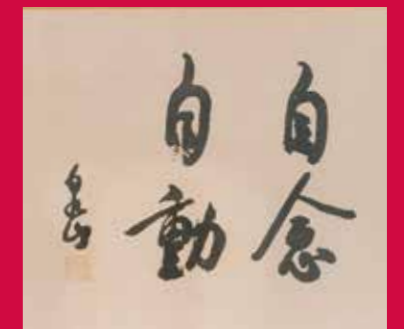 自念
自動